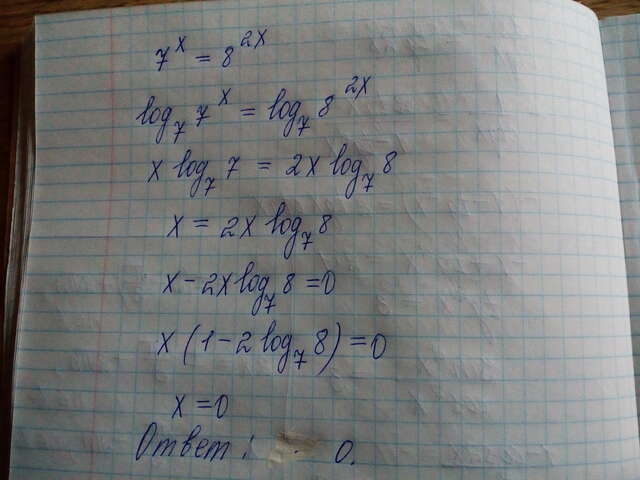 7^x = 8^2x
log₇ 7^x = log₇ 8^2x
x log₇ 7 = 2x log₇ 8
x = 2x log₇ 8
x - 2x log₇ 8 = 0
x (1 - 2 log₇ 8) = 0
x = 0
Ответ: 0.